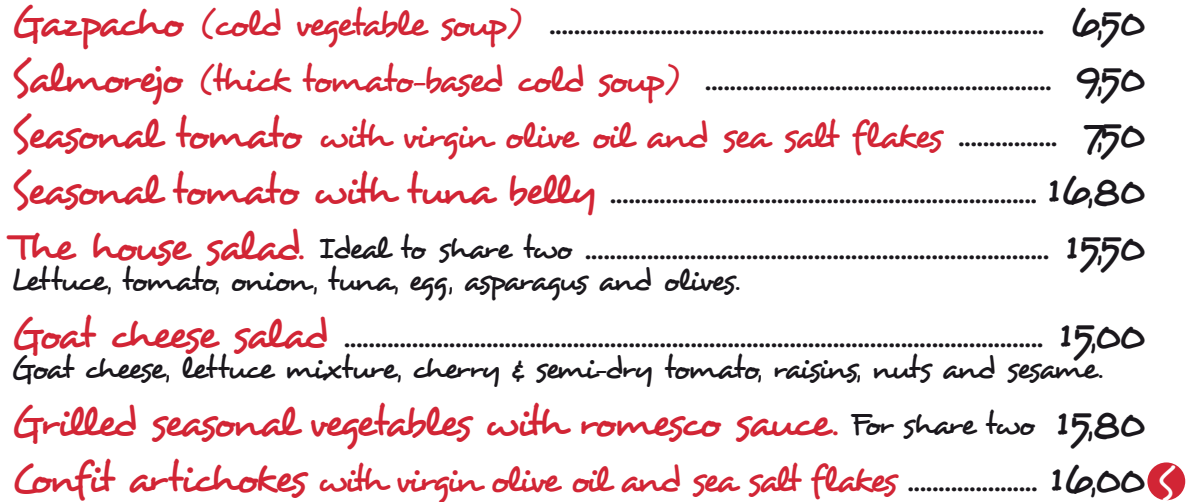 Gazpacho (cold vegetable soup) ........ 6,50
Salmorejo (thick tomato-based cold soup) ........ 9,50
Seasonal tomato with virgin olive oil and sea salt flakes ........ 7,50
Seasonal tomato with tuna belly ........ 16,80
The house salad. Ideal to share two ........ 15,50
Lettuce, tomato, onion, tuna, egg, asparagus and olives.
Goat cheese salad ........ 15,00
Goat cheese, lettuce mixture, cherry & semi-dry tomato, raisins, nuts and sesame.
Grilled seasonal vegetables with romesco sauce. For share two 15,80
Confit artichokes with virgin olive oil and sea salt flakes ........ 16,00